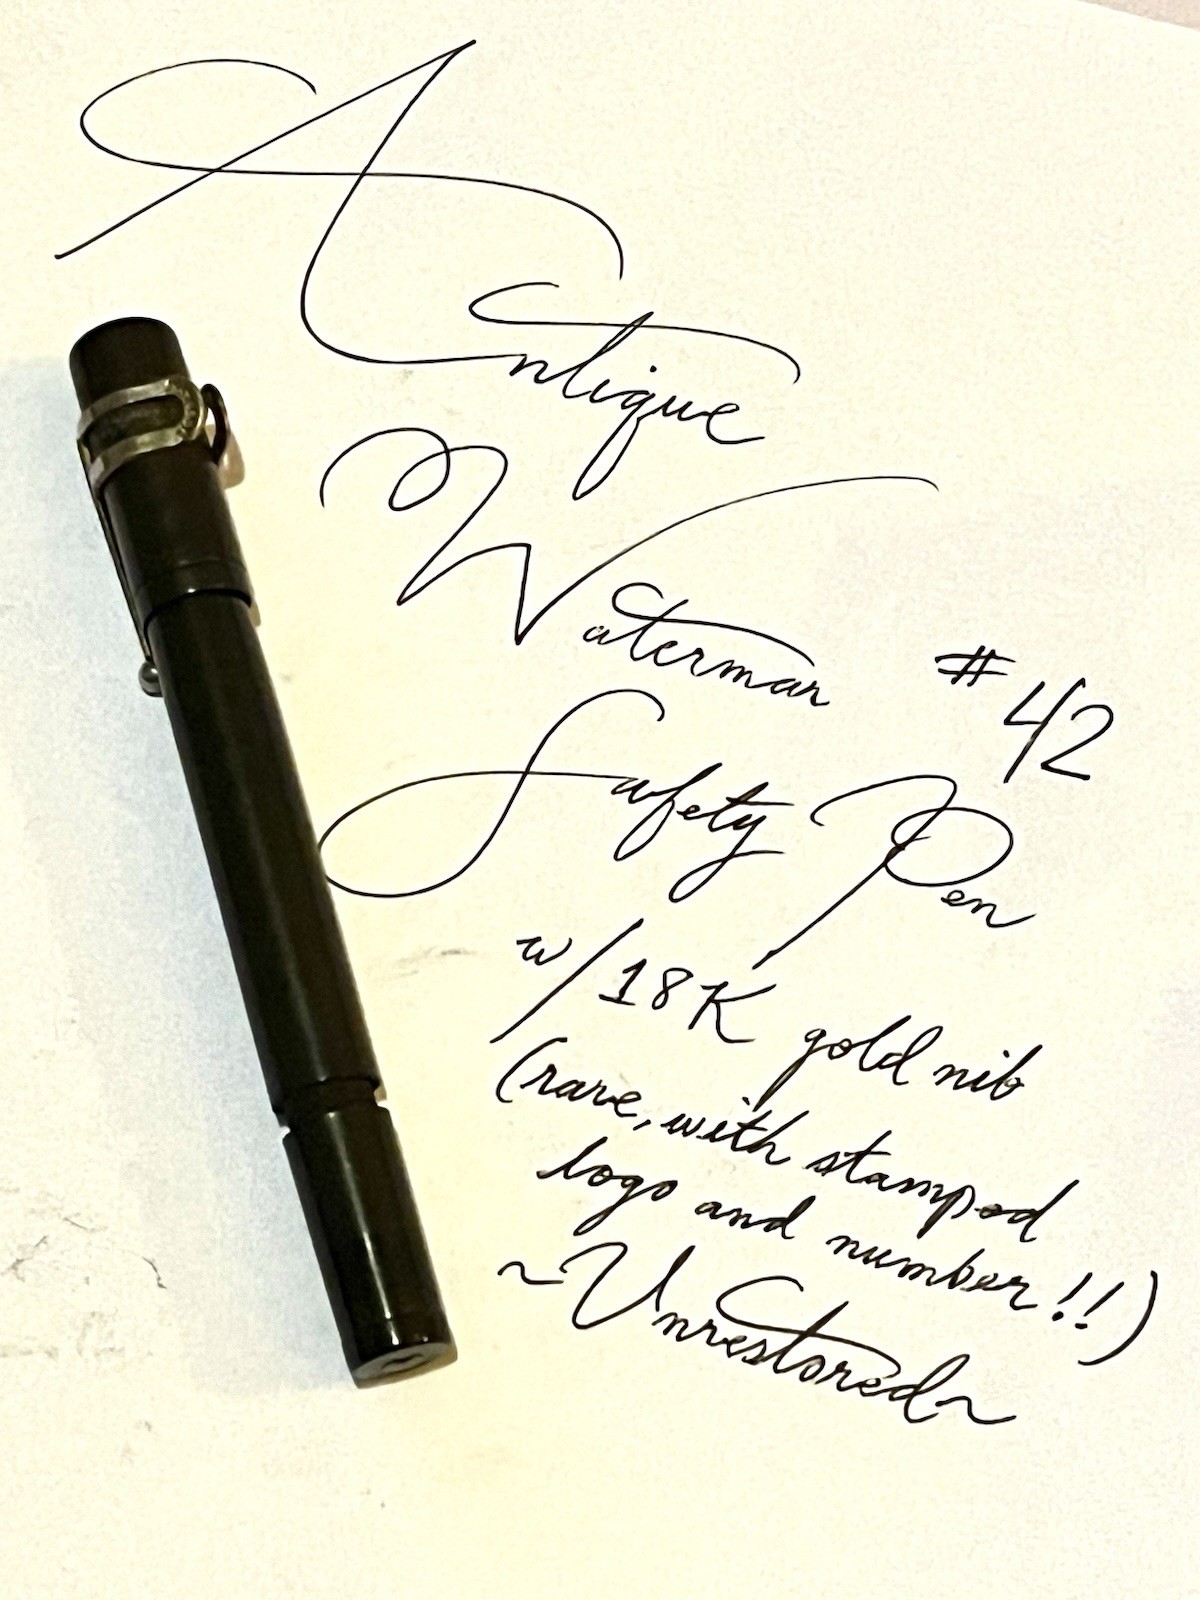 Antique
Waterman #42
Safety Pen
w/18K gold nib
(rare, with stamped
logo and number!!)
~Unrestored~